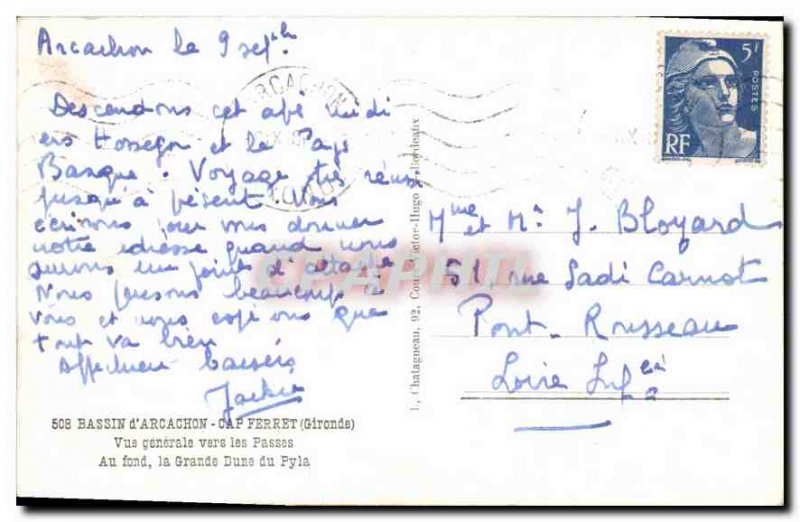 Arcachon le 9 sept
Descendons cet après midi
vers Hossegor et le Pays
Basque. Voyage très réussi
jusqu'à présent. Vous
écrirons pour vous donner
notre adresse quand nous
aurons un point d'attache
Nous pensons beaucoup à
vous et nous espérons que
tout va bien
Affectueux baisers
Jackie
508 BASSIN d'ARCACHON - CAP FERRET (Gironde)
Vue générale vers les Passes
Au fond, la Grande Dune du Pyla
L. Chatagneau, 92, Cours Victor-Hugo - Bordeaux
ARCACHON
5F
POSTES
RF
Mme et Mr J. Bloyard
51, rue Sadi Carnot
Pont-Rousseau
Loire Infre